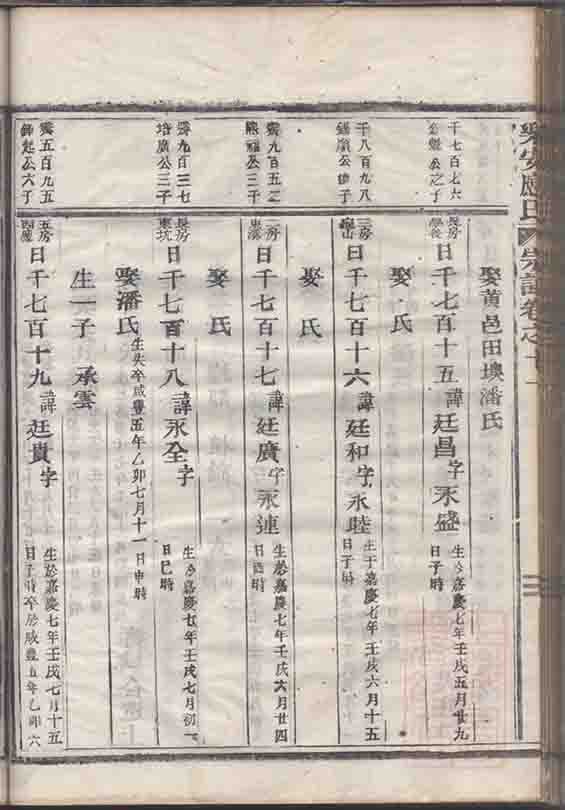 樂安廖氏宗譜卷之十一
娶黃邑田墺潘氏
千七百七六
公之子
長房
日千七百十五諱廷昌字永盛
生於嘉慶七年壬戌五月廿九
日子時
娶 氏
千八百九八
公 子
三房
日千七百十六諱廷和字永睦
生于嘉慶七年壬戌六月十五
日子時
娶 氏
霽九百五之
公三子
二房
日千七百十七諱廷廣字永連
生於嘉慶七年壬戌六月廿四
日酉時
娶 氏
霽九百三七
培廣公三子
長房
東坑
日千七百十八諱永全字
生於嘉慶七年壬戌七月初一
日巳時
娶潘氏
生失卒咸豐五年乙卯七月十一日申時
生一子 承雲
霽五百九五
公六子
五房
日千七百十九諱廷貴字
生於嘉慶七年壬戌七月十五
日子時卒於咸豐五年乙卯六